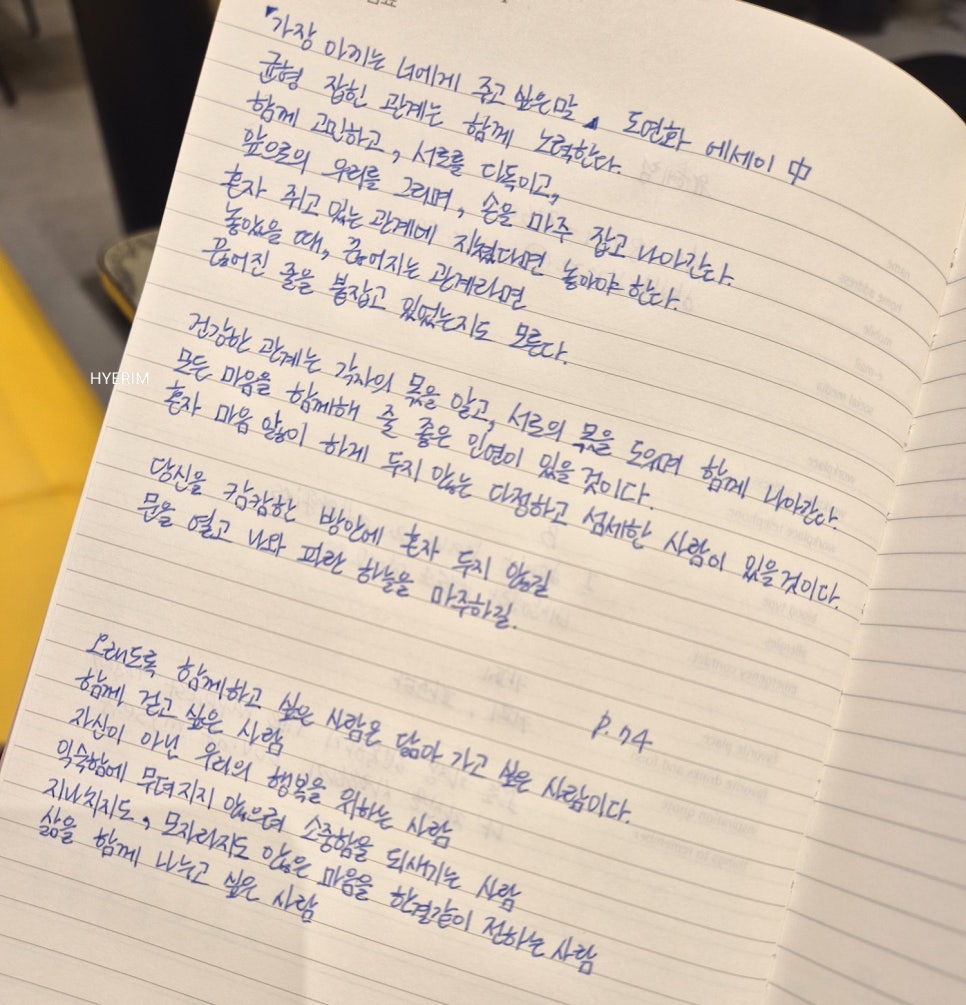 「가장 아끼는 너에게 주고 싶은 말」 도연화 에세이 中
균형 잡힌 관계는 함께 노력한다.
함께 고민하고, 서로를 다독이고,
앞으로의 우리를 그리며, 손을 마주 잡고 나아간다.
혼자 쥐고 있는 관계에 지쳤다면 놓아야 한다.
놓았을 때, 끊어지는 관계라면
끊어진 줄을 붙잡고 있었는지도 모른다.
건강한 관계는 각자의 몫을 알고, 서로의 몫을 도우며 함께 나아간다.
모든 마음을 함께해 줄 좋은 인연이 있을 것이다.
혼자 마음 앓이 하게 두지 않는 다정하고 섬세한 사람이 있을 것이다.
당신을 캄캄한 방안에 혼자 두지 않길
문을 열고 나와 파란 하늘을 마주하길.
P.74
오래도록 함께하고 싶은 사람은 닮아 가고 싶은 사람이다.
함께 걷고 싶은 사람
자신이 아닌 우리의 행복을 위하는 사람
익숙함에 무뎌지지 않으려 소중함을 되새기는 사람
지나치지도, 모자라지도 않은 마음을 한결같이 전하는 사람
삶을 함께 나누고 싶은 사람
HYERIM